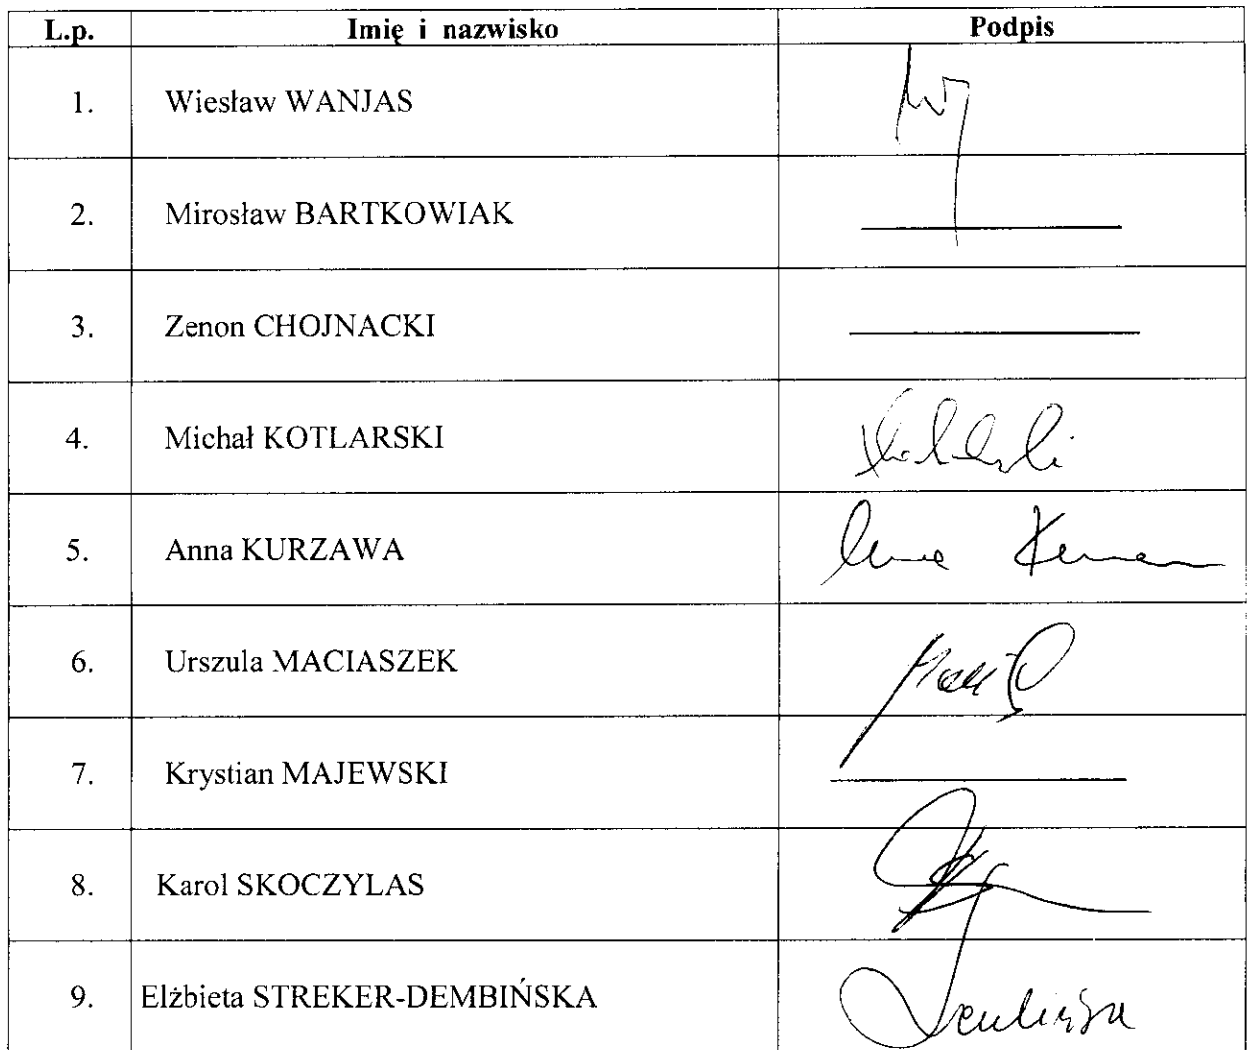 L.p. Imię i nazwisko Podpis
1. Wiesław WANJAS
2. Mirosław BARTKOWIAK
3. Zenon CHOJNACKI
4. Michał KOTLARSKI
5. Anna KURZAWA
6. Urszula MACIASZEK
7. Krystian MAJEWSKI
8. Karol SKOCZYLAS
9. Elżbieta STREKER-DEMBIŃSKA